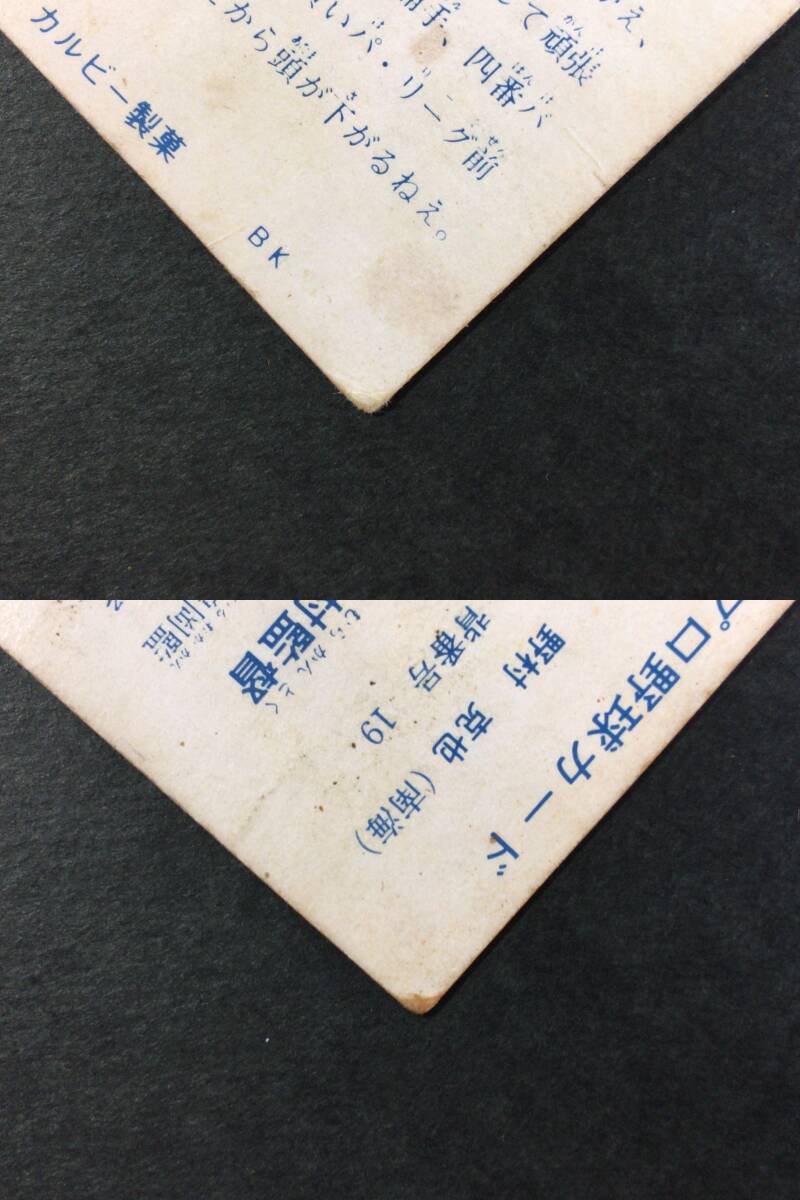 て頑張
捕手、四番バ
いパ・リーグ前
から頭が下がるねえ。
カルビー製菓
BK
プロ野球カード
野村 克也(南海)
背番号 19
村監督